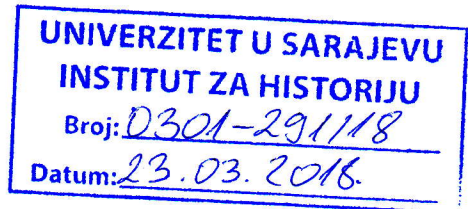 UNIVERZITET U SARAJEVU
INSTITUT ZA HISTORIJU
Broj: 0301-291/18
Datum: 23.03.2018.